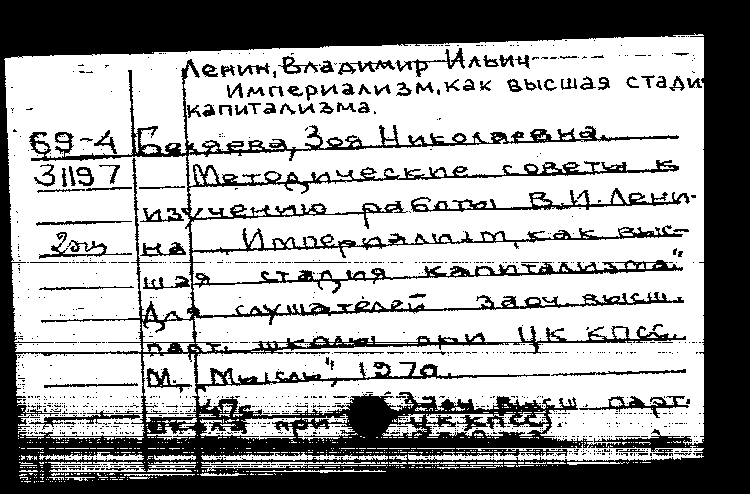 Ленин, Владимир Ильич
Империализм, как высшая стади
капитализма.
69-4 Беляева, Зоя Николаевна.
31197 Методические советы к
изучению работы В.И. Лени-
2экз на „Империализм, как выс-
шая стадия капитализма."
Для слушателей заоч. высш.
парт. школы при ЦК КПСС.
М., „Мысль", 1970.
47с. (Заоч. высш парт.
школа при ЦК КПСС).